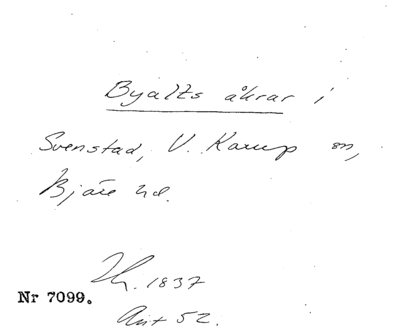 Byalts åkrar i
Svenstad, V. Karup sn,
Bjäre hd.
Th. 1837
Nr 7099.
Ant 52.